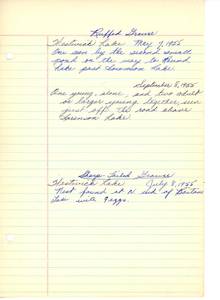 Ruffed Grouse
Westwick Lake May 7, 1955
One seen by the second small
pond on the way to Bond
Lake past Sorenson Lake.
September 8, 1955
One young, alone, and two adult
or larger young together, seen
just off the road above
Sorenson Lake.
Sharp-Tailed Grouse
Westwick Lake July 8, 1955
Nest found at N end of
Lake with 9 eggs.